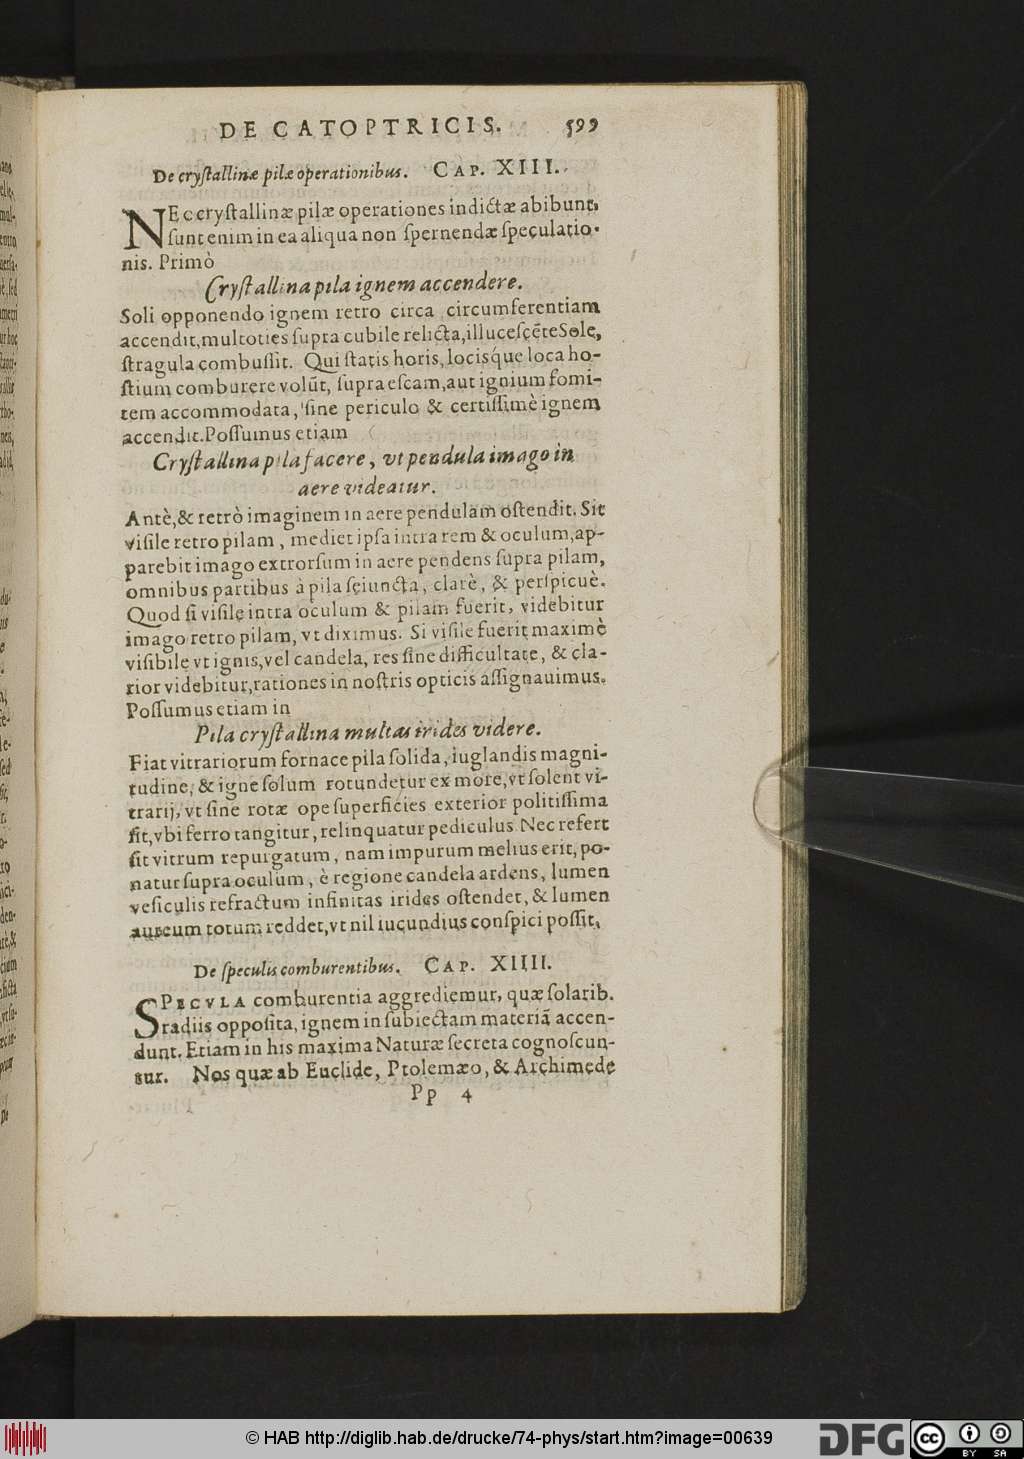 DE CATOPTRICIS. 599
De cryſtallinæ pilæ operationibus. CAP. XIII.
NEc cryſtallinæ pilæ operationes indictæ abibunt,
ſunt enim in ea aliqua non ſpernendæ ſpeculatio-
nis. Primò
Cryſtallina pila ignem accendere.
Soli opponendo ignem retro circa circumferentiam
accendit, multoties ſupra cubile relicta, illuceſcẽte Sole,
ſtragula combuſſit. Qui ſtatis horis, locisq́ue loca ho-
ſtium comburere volũt, ſupra eſcam, aut ignium fomi-
tem accommodata, ſine periculo & certiſſimè ignem
accendit. Poſſumus etiam
Cryſtallina pila facere, vt pendula imago in
aere videatur.
Antè, & retrò imaginem in aere pendulam oſtendit. Sit
viſile retro pilam, mediet ipſa intra rem & oculum, ap-
parebit imago extrorſum in aere pendens ſupra pilam,
omnibus partibus à pila ſeiuncta, clarè, & perſpicuè.
Quod ſi viſile intra oculum & pilam fuerit, videbitur
imago retro pilam, vt diximus. Si viſile fuerit maximè
viſibile vt ignis, vel candela, res ſine difficultate, & cla-
rior videbitur, rationes in noſtris opticis aſſignauimus.
Poſſumus etiam in
Pila cryſtallina multas irides videre.
Fiat vitrariorum fornace pila ſolida, iuglandis magni-
tudine, & igne ſolum rotundetur ex more, vt ſolent vi-
trarij, vt ſine rotæ ope ſuperficies exterior politiſſima
ſit, vbi ferro tangitur, relinquatur pediculus. Nec refert
ſit vitrum repurgatum, nam impurum melius erit, po-
natur ſupra oculum, è regione candela ardens, lumen
veſiculis refractum infinitas irides oſtendet, & lumen
aureum totum reddet, vt nil iucundius conſpici poſſit.
De ſpeculis comburentibus. CAP. XIIII.
SPECVLA comburentia aggrediemur, quæ ſolarib.
radiis oppoſita, ignem in ſubiectam materiã accen-
dunt. Etiam in his maxima Naturæ ſecreta cognoſcun-
tur. Nos quæ ab Euclide, Ptolemæo, & Archimede
Pp 4
© HAB http://diglib.hab.de/drucke/74-phys/start.htm?image=00639
DFG
cc BY SA